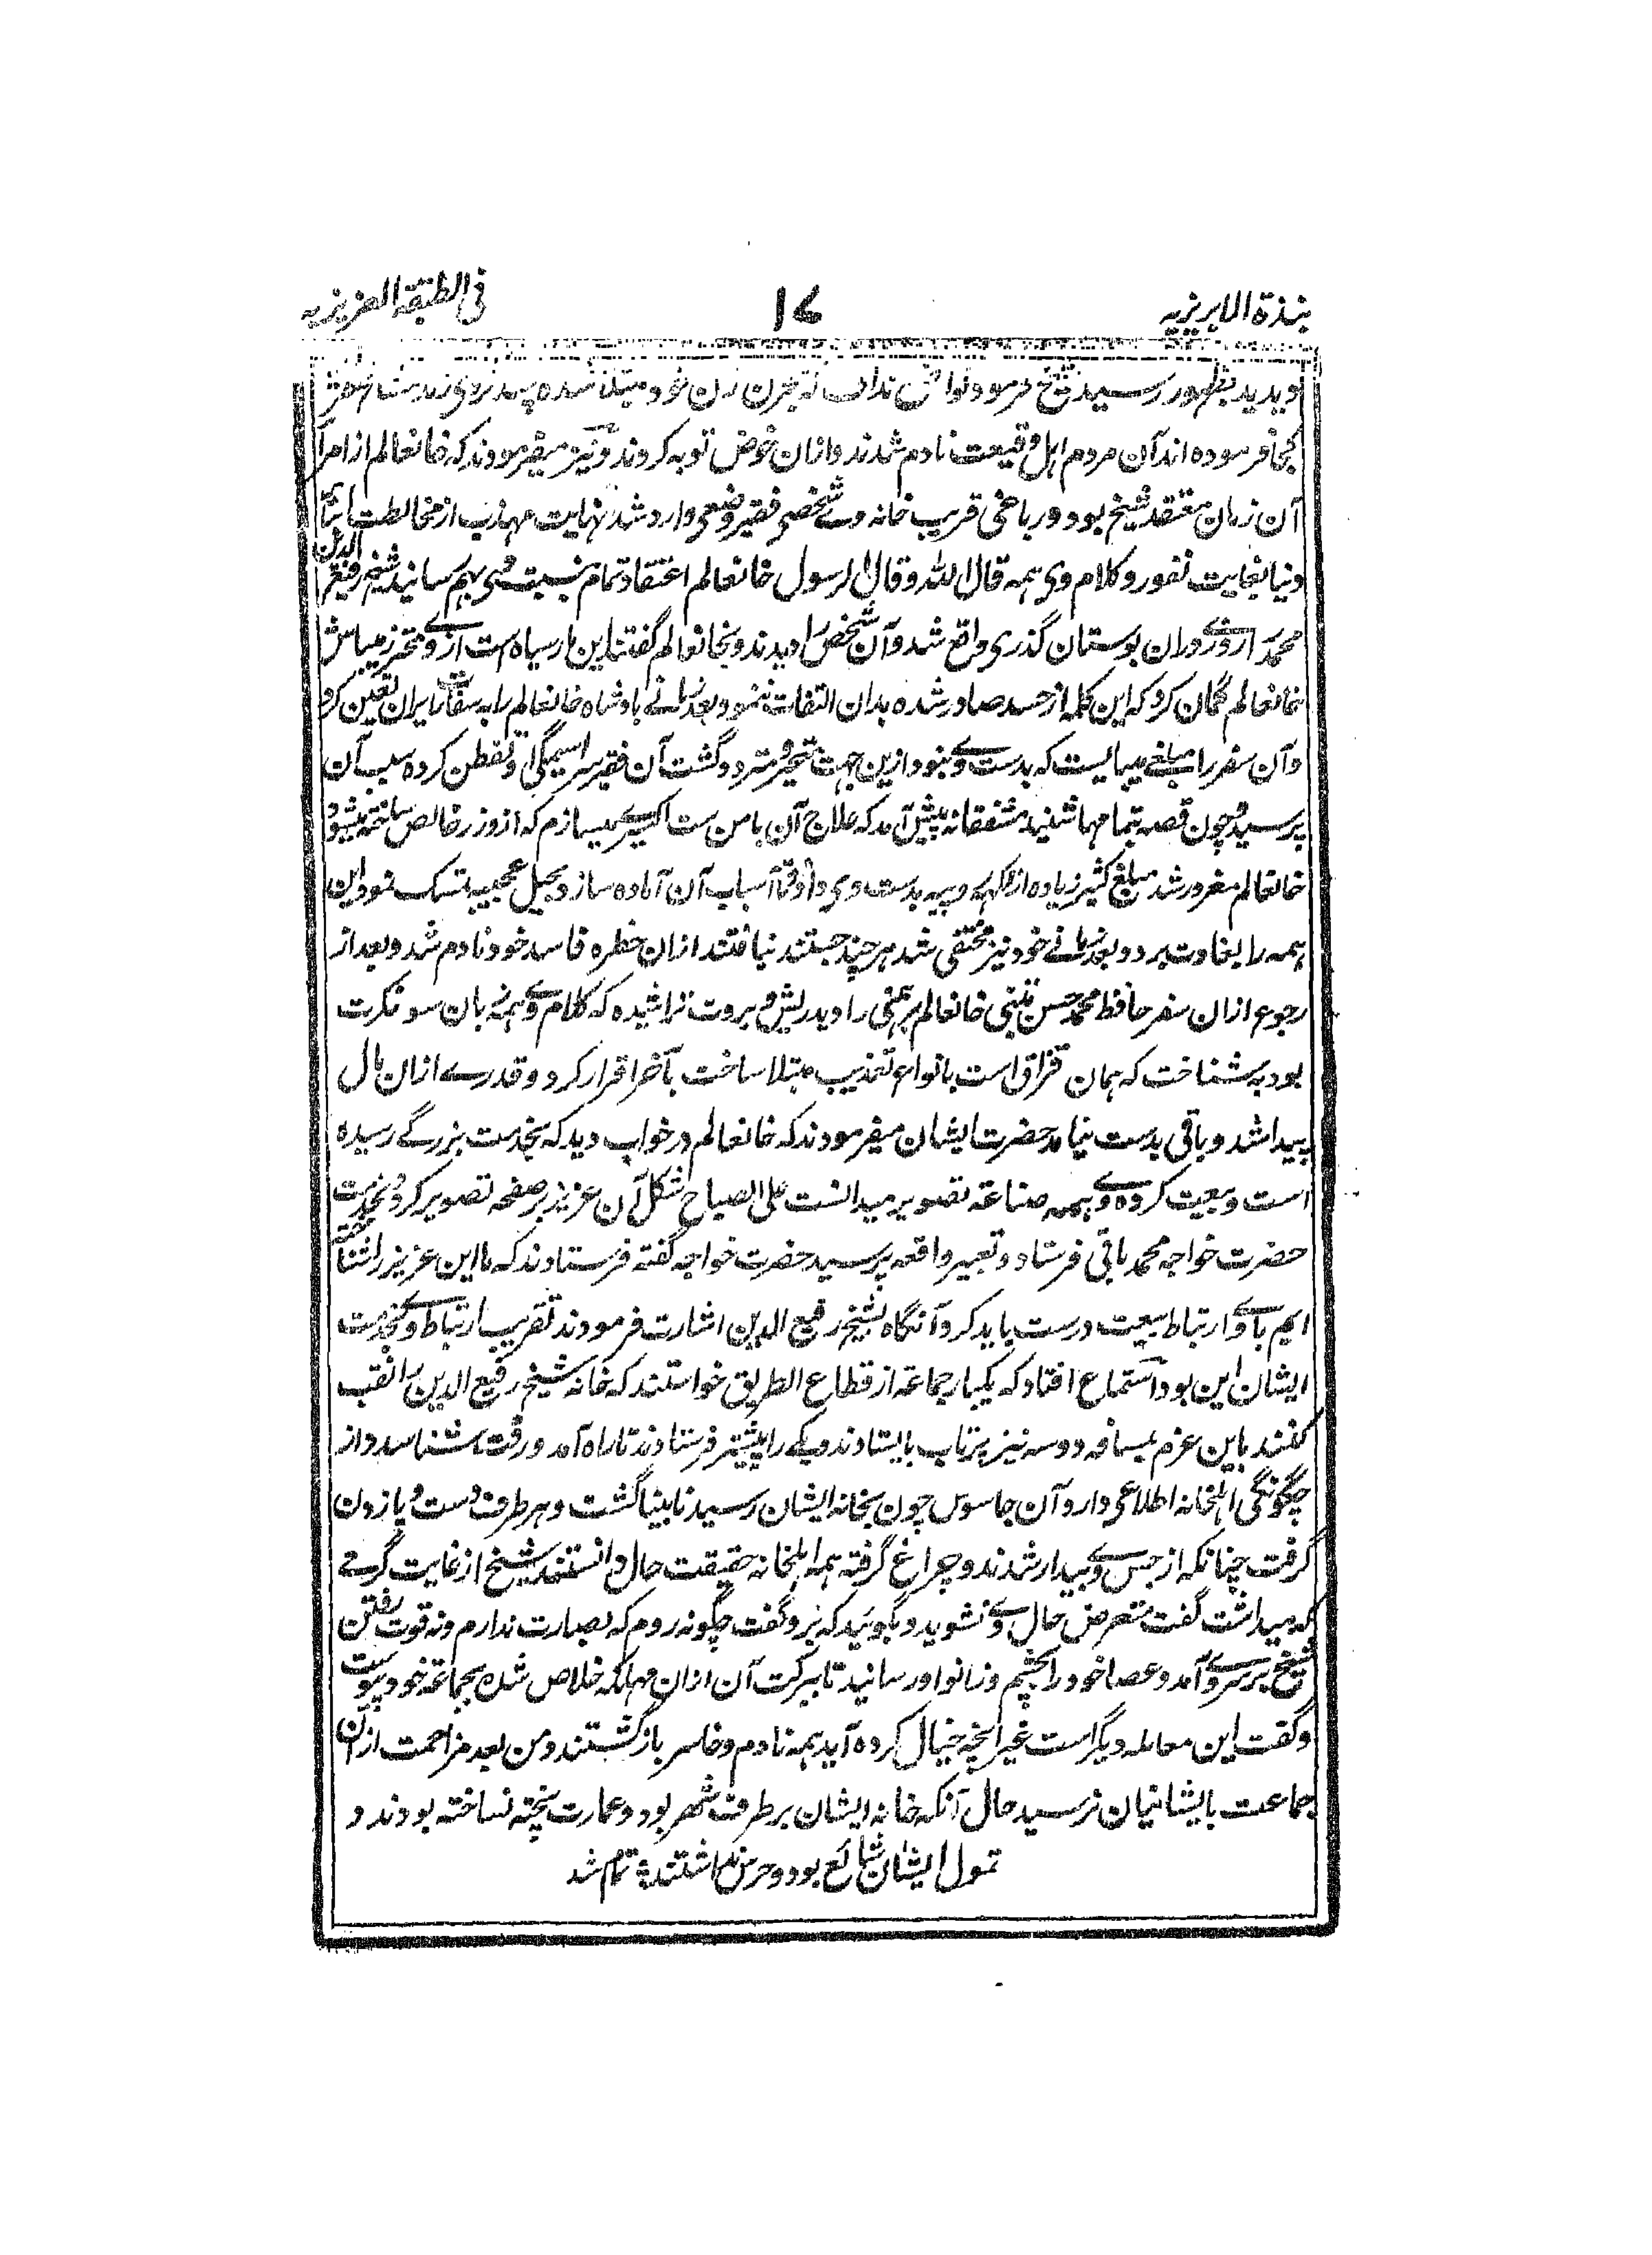 نبذة الابریزیه
۱۷
فی الطبقة العزیزیه
پدید بظهور رسید شیخ فرمود شده
کجا فرموده اند آن مردم اهل وقیعت نادم شدند و ازان خوض توبه کردند و نیز میفرمودند که خانعالم از امرا
آن زمان معتقد شیخ بود و در باغی قریب خانه وے شخصی فقیر وضعی وارد شد نهایت مهذب از مخالطت ابنا
دنیا بغایت نفور و کلام وی همه قال الله و قال الرسول خانعالم اعتقاد تمام نسبت وی بهم رسانید شیخ رفیع الدین
محمد را روزے دران بوستان گذری واقع شد و آن شخص را دیدند و بخانعالم گفتند این مار سیاه است ازوے محترز میباش
خانعالم گمان کرد که این کلمه از حسد صادر شده بدان التفات ننمود بعد زمانے بادشاه خانعالم را به سفارت ایران تعین کرد
و آن سفر را مبلغے میبایست که بدست وے نبود ازین جهت متحیر و متردد گشت آن فقیر سراسیمگی او تفطن کرده سبب آن
پرسید و چون قصه بتمامها شنید مشفقانه پیش آمد که علاج آن با من ست اکسیرے میسازم که ازو زر خالص ساخته میشود
خانعالم مغرور شد مبلغ کثیر زیاده از لکهه روپیه بدست وی داد تا اسباب آن آماده سازد بحیل عجیبه تمسک نمود این
همه را بغارت برد و بعد زمانے خود نیز مختفی شد هر چند جستند نیافتند ازان خطره فاسد خود نادم شد و بعد از
رجوع ازان سفر حافظ محمد حسن متبنی خانعالم برهمنی را دید ریش و بروت تراشیده که کلام وے همه بزبان سونکرت
بود بشناخت که همان قزاق است بانواع تعذیب مبتلا ساخت بآخر اقرار کرد و قدرے ازان مال
پیدا شد و باقی بدست نیامد حضرت ایشان میفرمودند که خانعالم در خواب دید که بخدمت بزرگے رسیده
است و بیعت کرده وے همه صناعة تصویر میدانست علی الصباح شکل آن عزیز بر صفحه تصویر کرد و بخدمت
حضرت خواجه محمد باقی فرستاد و تعبیر واقعه پرسید حضرت خواجه گفته فرستادند که ما این عزیز را شناخته
ایم با وے ارتباط بیعت درست باید کرد آنگاه بشیخ رفیع الدین اشارت فرمودند تقریب ارتباط وے بخدمت
ایشان این بود استماع افتاد که یکبار جماعة از قطاع الطریق خواستند که خانه شیخ رفیع الدین را نقب
کنند باین عزم بمسافه دو سه تیر پرتاب بایستادند و یکے را پیشتر فرستادند تا راه آمد و رفت بشناسد و از
چگونگی اهلخانه اطلاعی دارد آن جاسوس چون بخانه ایشان رسید نابینا گشت و هر طرف دست و پا زدن
گرفت چنانکه از حس وے بیدار شدند و چراغ گرفته همه اهلخانه حقیقت حال دانستند شیخ از غایت کرمے
که میداشت گفت متعرض حال وے نشوید و بگوئید که برو گفت چگونه روم که بصارت ندارم و نه قوت رفتن
شیخ بر سر وے آمد و عصا خود را بچشم و زانو او رسانید تا ببرکت آن ازان مهلکه خلاص شده بجماعة خود پیوست
و گفت این معامله دیگر است غیر آنچه خیال کرده آید همه نادم و خاسر بازگشتند و من بعد مزاحمت ازان
جماعت بایشانیان نرسید حال آنکه خانه ایشان برطرف شهر بود و عمارت پخته نساخته بودند و
تمول ایشان شائع بود و حرس نداشتند ؞ تمام شد